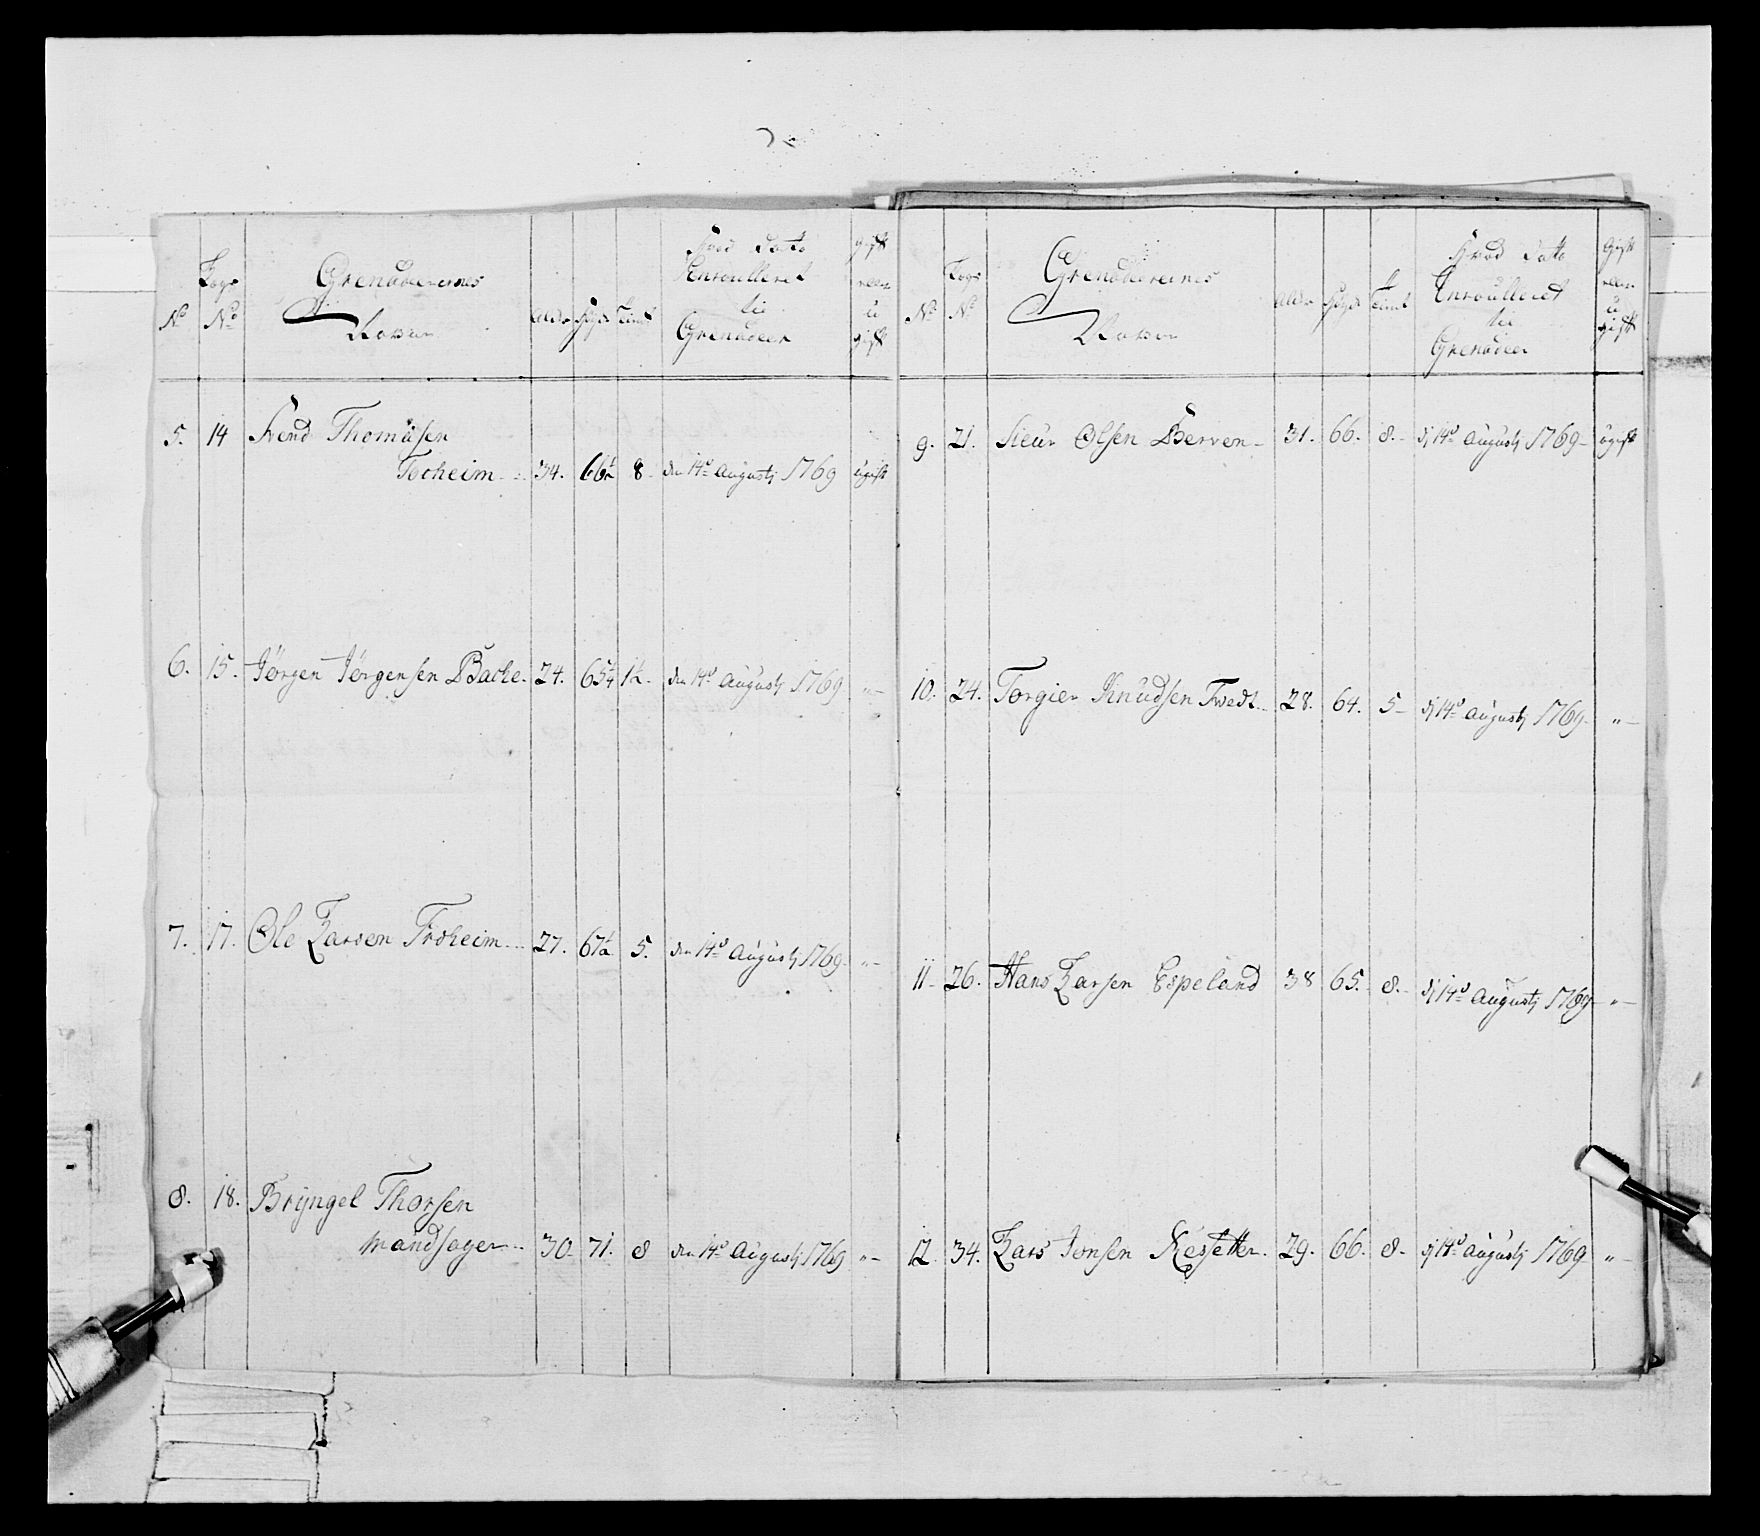 No
Logs No
Grenadeerernes Navne
Alder
Høyde
Tiente
Hvad Dato Enroulleret til Grenadeer
Gift eller ugift
5. 14 Svend Thomæsen
Tocheim 34. 66½ 8 den 14de Augustj 1769 ugift
6. 15. Jørgen Jørgensen Bache 24. 65¼ 1½ den 14de Augustj 1769 "
7. 17. Ole Larsen Froheim 27. 67½ 5. den 14de Augustj 1769 "
8. 18. Brÿngel Thorsen
Mandsager 30 71. 8 den 14de Augustj 1769 "
No
Logs No
Grenadeerernes Navne
Alder
Høyde
Tient
Hvad Dato Enroulleret til Grenadeer
Gift eller ugift
9. 21. Sieur Olsen Berven 31. 66. 8. dj 14de Augustj 1769 ugift
10. 24. Torgier Knudsen Twedt 28. 64. 5 dj 14de Augustj 1769 "
11 26. Hans Larsen Espeland 38 65. 8. dj 14de Augustj 1769 "
12. 34. Lars Jonsen Resetter 29. 66. 8. dj 14de Augustj 1769 "